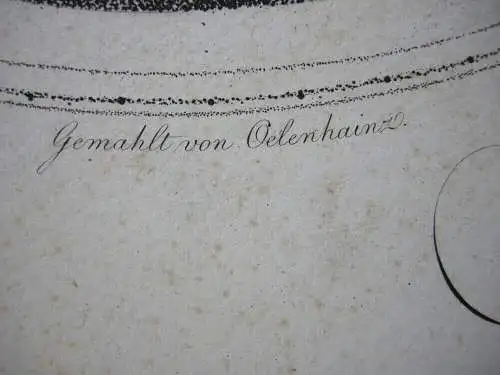 Gemahlt von Oelenhainz.